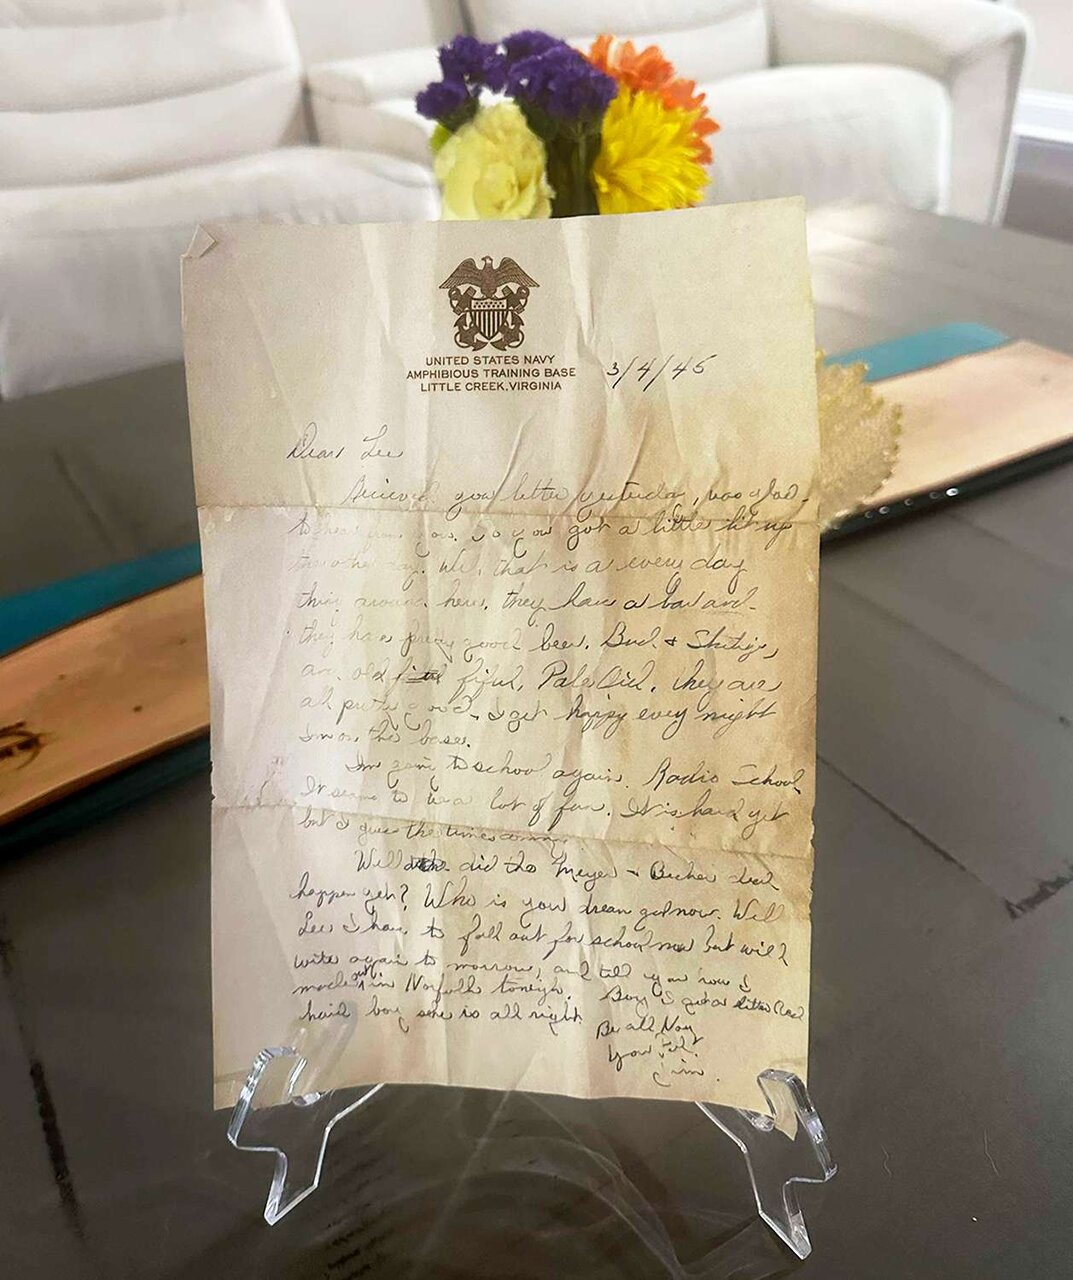 UNITED STATES NAVY
AMPHIBIOUS TRAINING BASE
LITTLE CREEK, VIRGINIA
3/4/45
Dear Lee
Recieved your letter yesterday, was glad
to hear from you. So you got a little lit up
the other day. Well, that is a every day
thing around here. they have a bar and
they have pretty good beer. Bud &
an old Pale they are
all pretty good. I get happy every night
Im on the base.
Im going to school again. Radio School
It seems to be a lot of fun. It is hard yet
but I guess the time is coming.
Well did the Meyer & Becher deal
happen yet? Who is your dream girl now. Well
Lee I have to fall out for school now but will
write again to morrow, and tell you how I
made out in Norfolk tonight. Boy I got a little Red
haid boy she is all right
Be all Navy
Your
Jim.